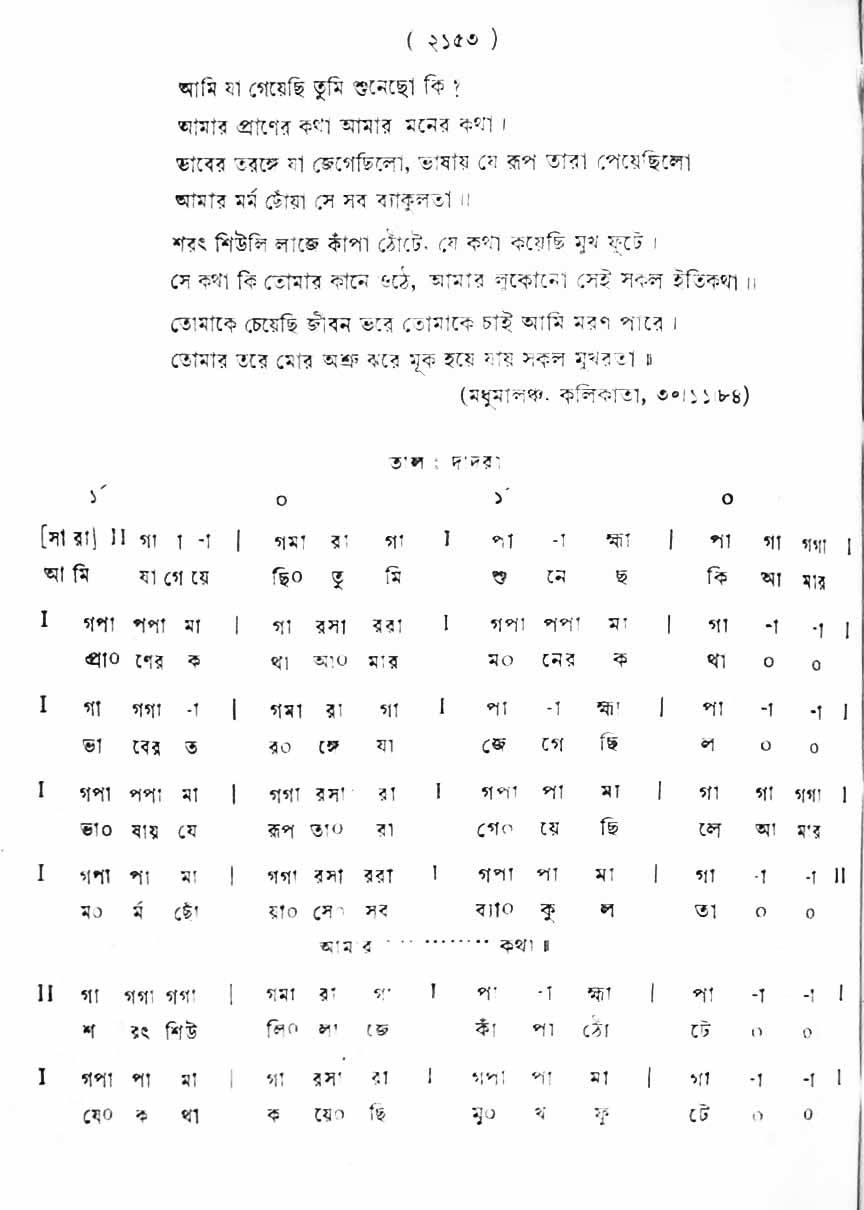 ( ২১৫৩ )
আমি যা গেয়েছি তুমি শুনেছো কি ?
আমার প্রাণের কথা আমার মনের কথা ।
ভাবের তরঙ্গে যা জেগেছিলো, ভাষায় যে রূপ তারা পেয়েছিলো
আমার মর্ম ছোঁয়া সে সব ব্যাকুলতা ॥
শরৎ শিউলি লাজে কাঁপা ঠোঁটে. যে কথা কয়েছি মুখ ফুটে ।
সে কথা কি তোমার কানে ওঠে, আমার লুকোনো সেই সকল ইতিকথা ॥
তোমাকে চেয়েছি জীবন ভরে তোমাকে চাই আমি মরণ পারে ।
তোমার তরে মোর অশ্রু ঝরে মূক হয়ে যায় সকল মুখরতা ॥
(মধুমালঞ্চ. কলিকাতা, ৩০।১১।৮৪)
তাল : দাদরা
১´ ০ ১´ ০
[সা রা] II গা া -া | গমা রা গা I পা -া হ্মা | পা গা গগা I
আমি যা গে য়ে ছি০ তু মি শু নে ছ কি আ মার
I গপা পপা মা | গা রসা ররা I গপা পপা মা | গা -া -া I
প্রা০ ণের ক থা আ০ মার ম০ নের ক থা ০ ০
I গা গগা -া | গমা রা গা I পা -া হ্মা | পা -া -া I
ভা বের ত র০ ঙ্গে যা জে গে ছি ল ০ ০
I গপা পপা মা | গগা রসা রা I গপা পা মা | গা গা গগা I
ভা০ ষায় যে রূপ তা০ রা গে০ য়ে ছি লে আ মার
I গপা পা মা | গগা রসা ররা I গপা পা মা | গা -া -া II
ম০ র্ম ছোঁ য়া০ সে০ সব ব্যা০ কু ল তা ০ ০
আমার ············ কথা ॥
II গা গগা গগা | গমা রা গা I পা -া হ্মা | পা -া -া I
শ রৎ শিউ লি০ লা জে কাঁ পা ঠোঁ টে ০ ০
I গপা পা মা | গা রসা রা I গপা পা মা | গা -া -া I
যে০ ক থা ক য়ে০ ছি মু০ খ ফু টে ০ ০